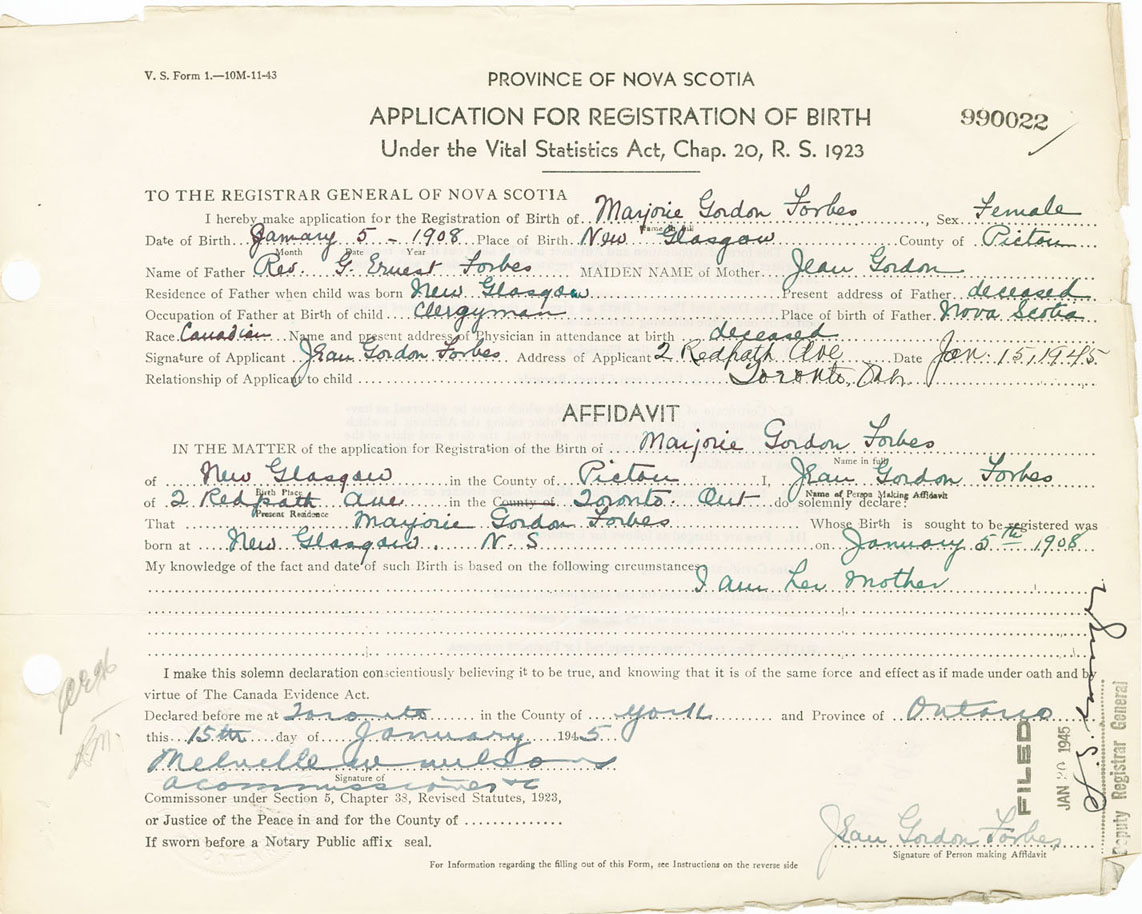 V. S. Form 1.—10M-11-43
PROVINCE OF NOVA SCOTIA
APPLICATION FOR REGISTRATION OF BIRTH
990022
Under the Vital Statistics Act, Chap. 20, R. S. 1923
TO THE REGISTRAR GENERAL OF NOVA SCOTIA
I hereby make application for the Registration of Birth of Marjorie Gordon Forbes, Sex Female
Name in full
Date of Birth January 5 - 1908 Place of Birth New Glasgow County of Pictou
Month Date Year
Name of Father Rev. G. Ernest Forbes MAIDEN NAME of Mother Jean Gordon
Residence of Father when child was born New Glasgow Present address of Father deceased
Occupation of Father at Birth of child Clergyman Place of birth of Father Nova Scotia
Race Canadian Name and present address of Physician in attendance at birth deceased
Signature of Applicant Jean Gordon Forbes Address of Applicant 2 Redpath Ave Date Jan. 15, 1945
Relationship of Applicant to child Toronto, Ont.
AFFIDAVIT
IN THE MATTER of the application for Registration of the Birth of Marjorie Gordon Forbes
Name in full
of New Glasgow in the County of Pictou I, Jean Gordon Forbes
Birth Place Name of Person Making Affidavit
of 2 Redpath Ave in the County of Toronto. Ont do solemnly declare:
Present Residence
That Marjorie Gordon Forbes Whose Birth is sought to be registered was
born at New Glasgow. N. S on January 5th 1908
My knowledge of the fact and date of such Birth is based on the following circumstances
I am her Mother
I make this solemn declaration conscientiously believing it to be true, and knowing that it is of the same force and effect as if made under oath and by
virtue of The Canada Evidence Act.
Declared before me at Toronto in the County of York and Province of Ontario
this 15th day of January 1945
Melville W Wilson
Signature of
A commissioner etc
Commissoner under Section 5, Chapter 38, Revised Statutes, 1923,
or Justice of the Peace in and for the County of
If sworn before a Notary Public affix seal.
Jean Gordon Forbes
Signature of Person making Affidavit
For Information regarding the filling out of this Form, see Instructions on the reverse side
FILED
JAN 20 1945
Deputy Registrar General